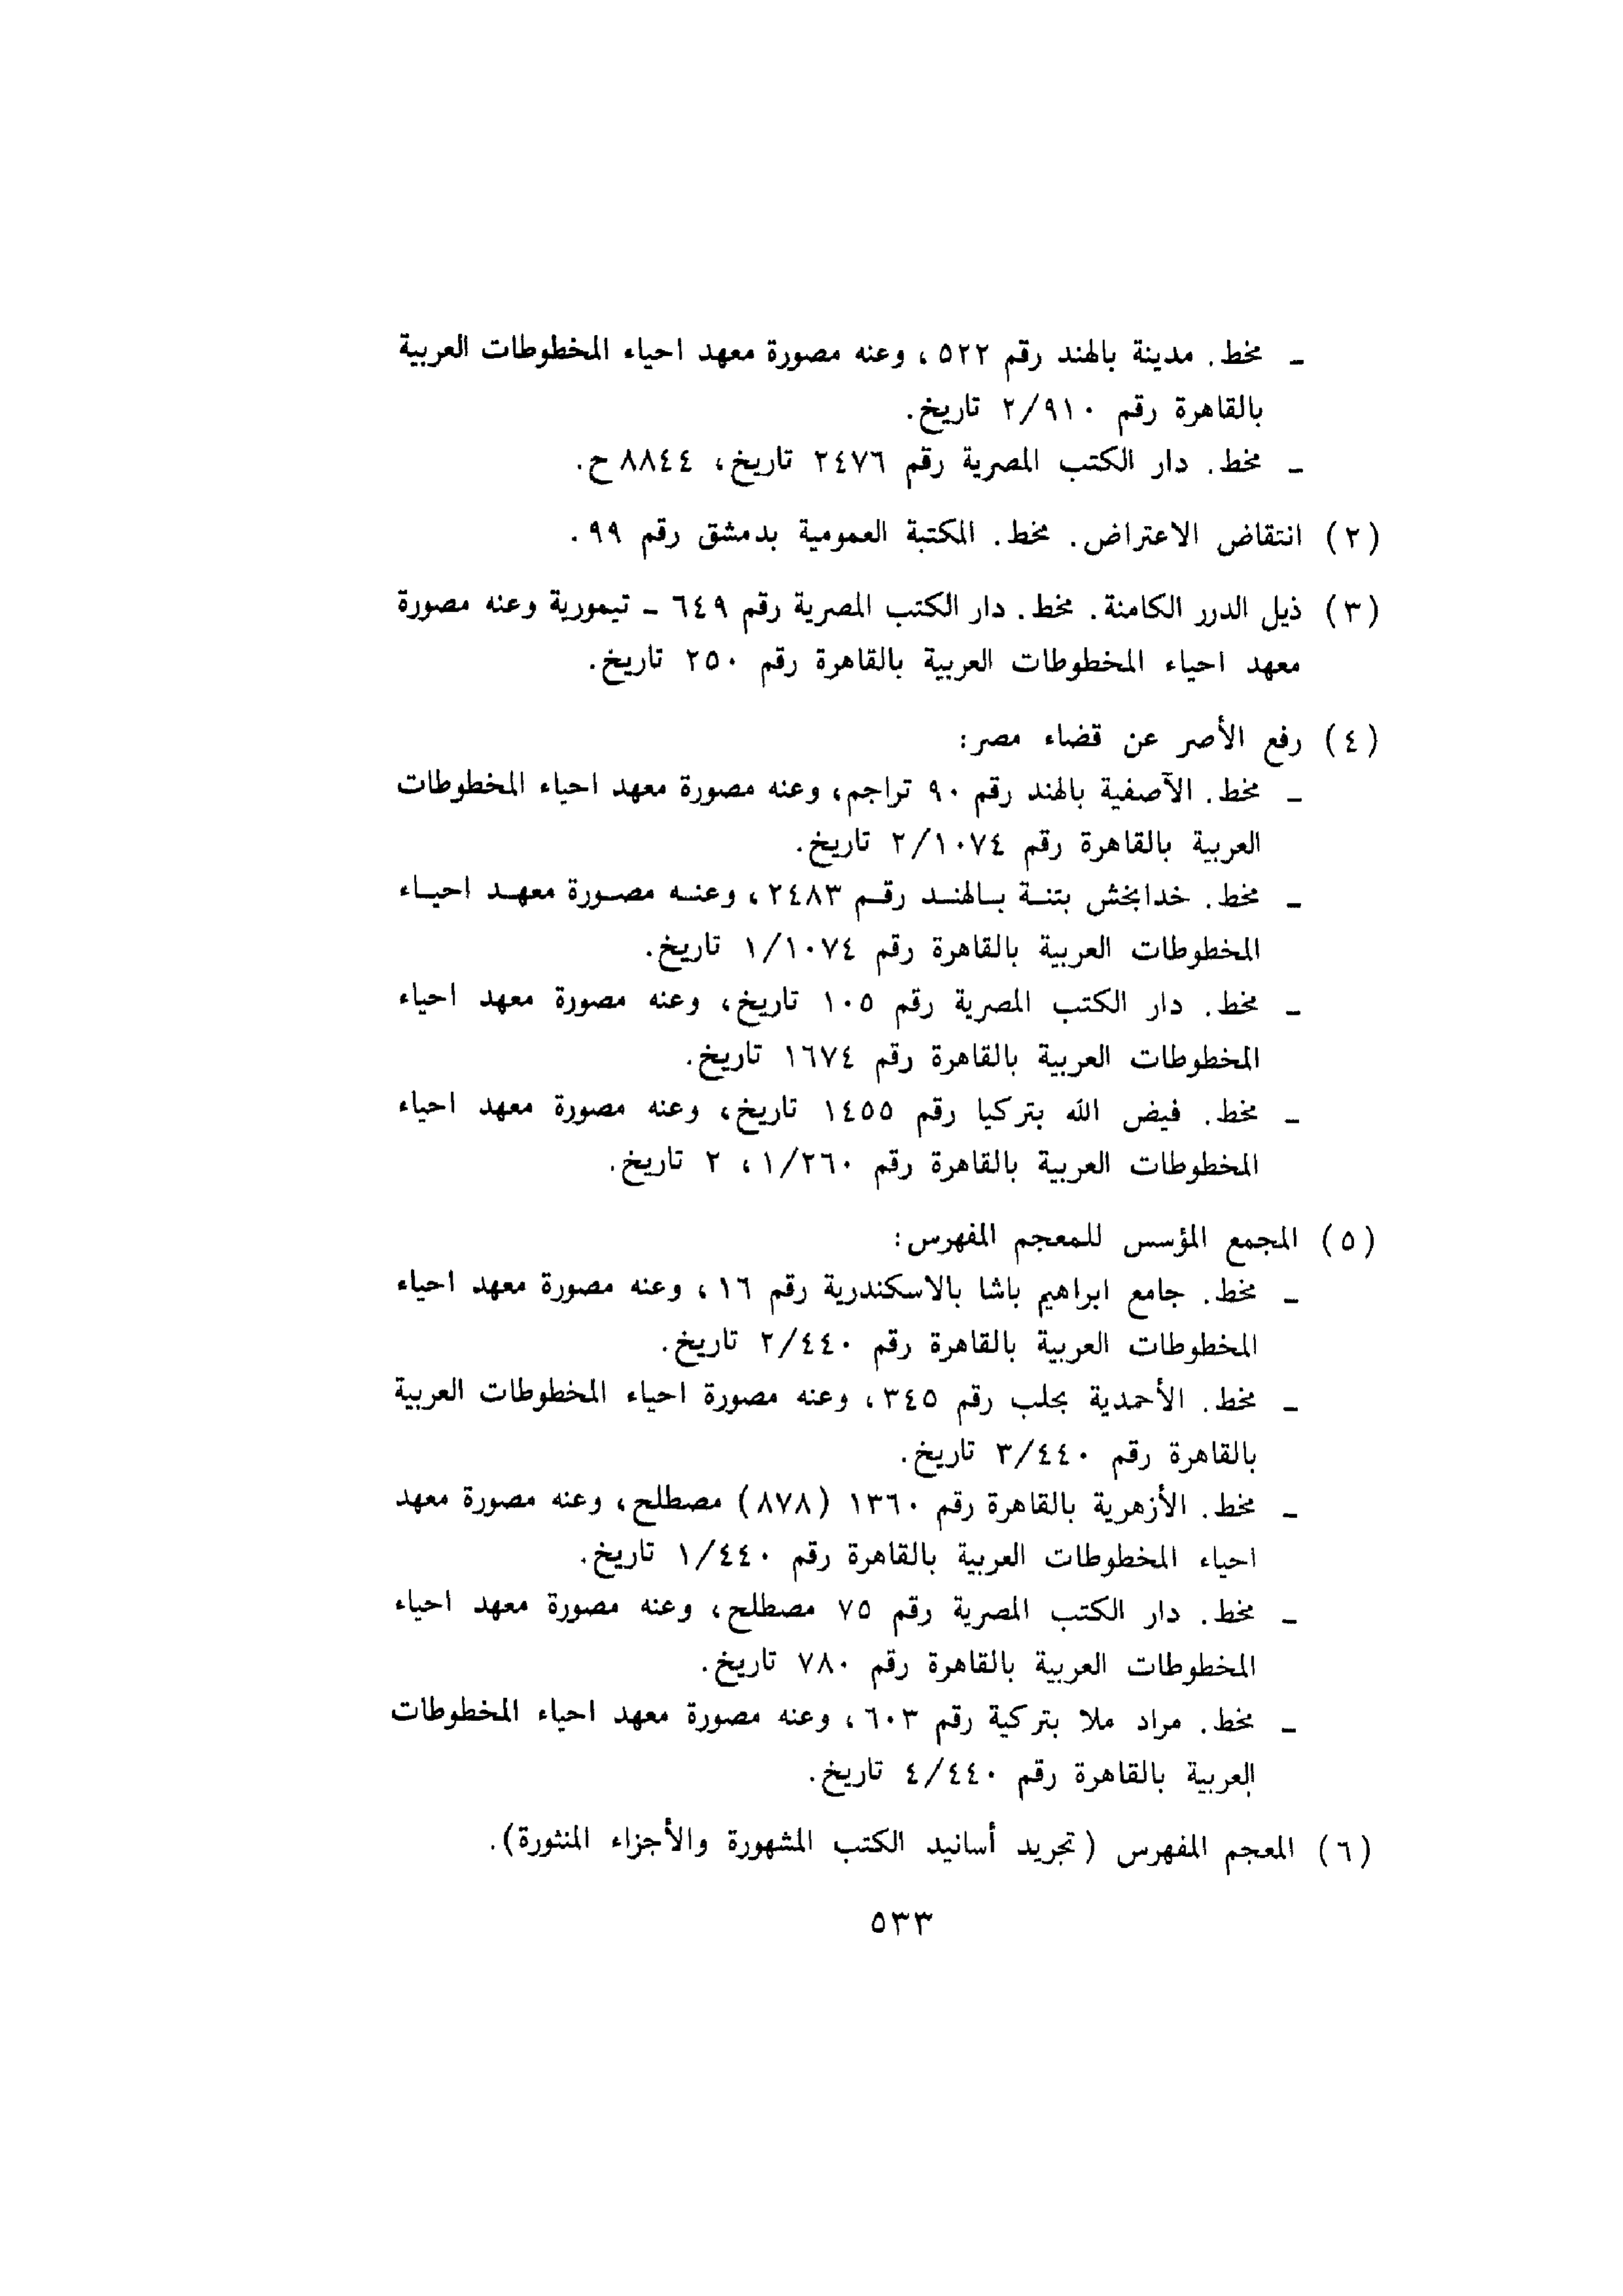 ـ مخط. مدينة بالهند رقم ٥٢٢، وعنه مصورة معهد احياء المخطوطات العربية
بالقاهرة رقم ٢/٩١٠ تاريخ.
ـ مخط. دار الكتب المصرية رقم ٢٤٧٦ تاريخ، ٨٨٤٤ ح.
(٢) انتقاض الاعتراض. مخط. المكتبة العمومية بدمشق رقم ٩٩.
(٣) ذيل الدرر الكامنة. مخط. دار الكتب المصرية رقم ٦٤٩ ـ تيمورية وعنه مصورة
معهد احياء المخطوطات العربية بالقاهرة رقم ٢٥٠ تاريخ.
(٤) رفع الأصر عن قضاء مصر:
ـ مخط. الآصفية بالهند رقم ٩٠ تراجم، وعنه مصورة معهد احياء المخطوطات
العربية بالقاهرة رقم ٢/١٠٧٤ تاريخ.
ـ مخط. خدابخش بتنـة بـالهنـد رقـم ٢٤٨٣، وعنـه مصـورة معهـد احيـاء
المخطوطات العربية بالقاهرة رقم ١/١٠٧٤ تاريخ.
ـ مخط. دار الكتب المصرية رقم ١٠٥ تاريخ، وعنه مصورة معهد احياء
المخطوطات العربية بالقاهرة رقم ١٦٧٤ تاريخ.
ـ مخط. فيض الله بتركيا رقم ١٤٥٥ تاريخ، وعنه مصورة معهد احياء
المخطوطات العربية بالقاهرة رقم ١/٢٦٠، ٢ تاريخ.
(٥) المجمع المؤسس للمعجم المفهرس:
ـ مخط. جامع ابراهيم باشا بالاسكندرية رقم ١٦، وعنه مصورة معهد احياء
المخطوطات العربية بالقاهرة رقم ٢/٤٤٠ تاريخ.
ـ مخط. الأحمدية بحلب رقم ٣٤٥، وعنه مصورة احياء المخطوطات العربية
بالقاهرة رقم ٣/٤٤٠ تاريخ.
ـ مخط. الأزهرية بالقاهرة رقم ١٣٦٠ (٨٧٨) مصطلح، وعنه مصورة معهد
احياء المخطوطات العربية بالقاهرة رقم ١/٤٤٠ تاريخ.
ـ مخط. دار الكتب المصرية رقم ٧٥ مصطلح، وعنه مصورة معهد احياء
المخطوطات العربية بالقاهرة رقم ٧٨٠ تاريخ.
ـ مخط. مراد ملا بتركية رقم ٦٠٣، وعنه مصورة معهد احياء المخطوطات
العربية بالقاهرة رقم ٤/٤٤٠ تاريخ.
(٦) المعجم المفهرس (تجريد أسانيد الكتب المشهورة والأجزاء المنثورة).
٥٣٣